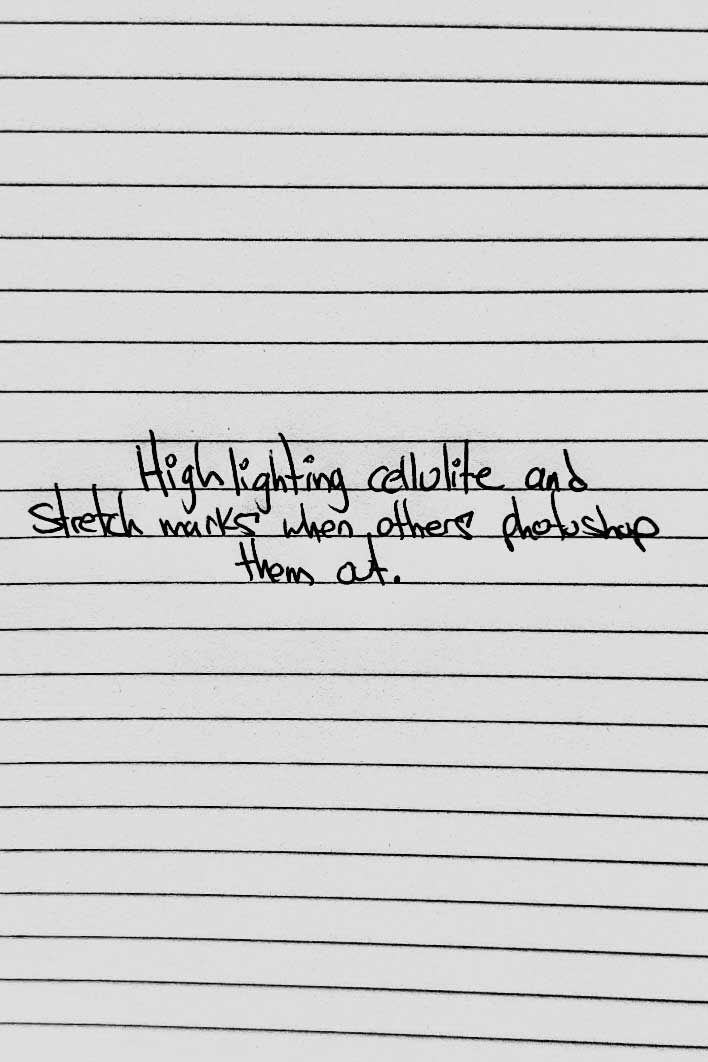 Highlighting cellulite and
stretch marks when others photoshop
them out.